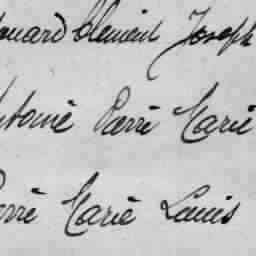 ouard Clément Joseph
ntoine Pierre Marie
ierre Marie Louis